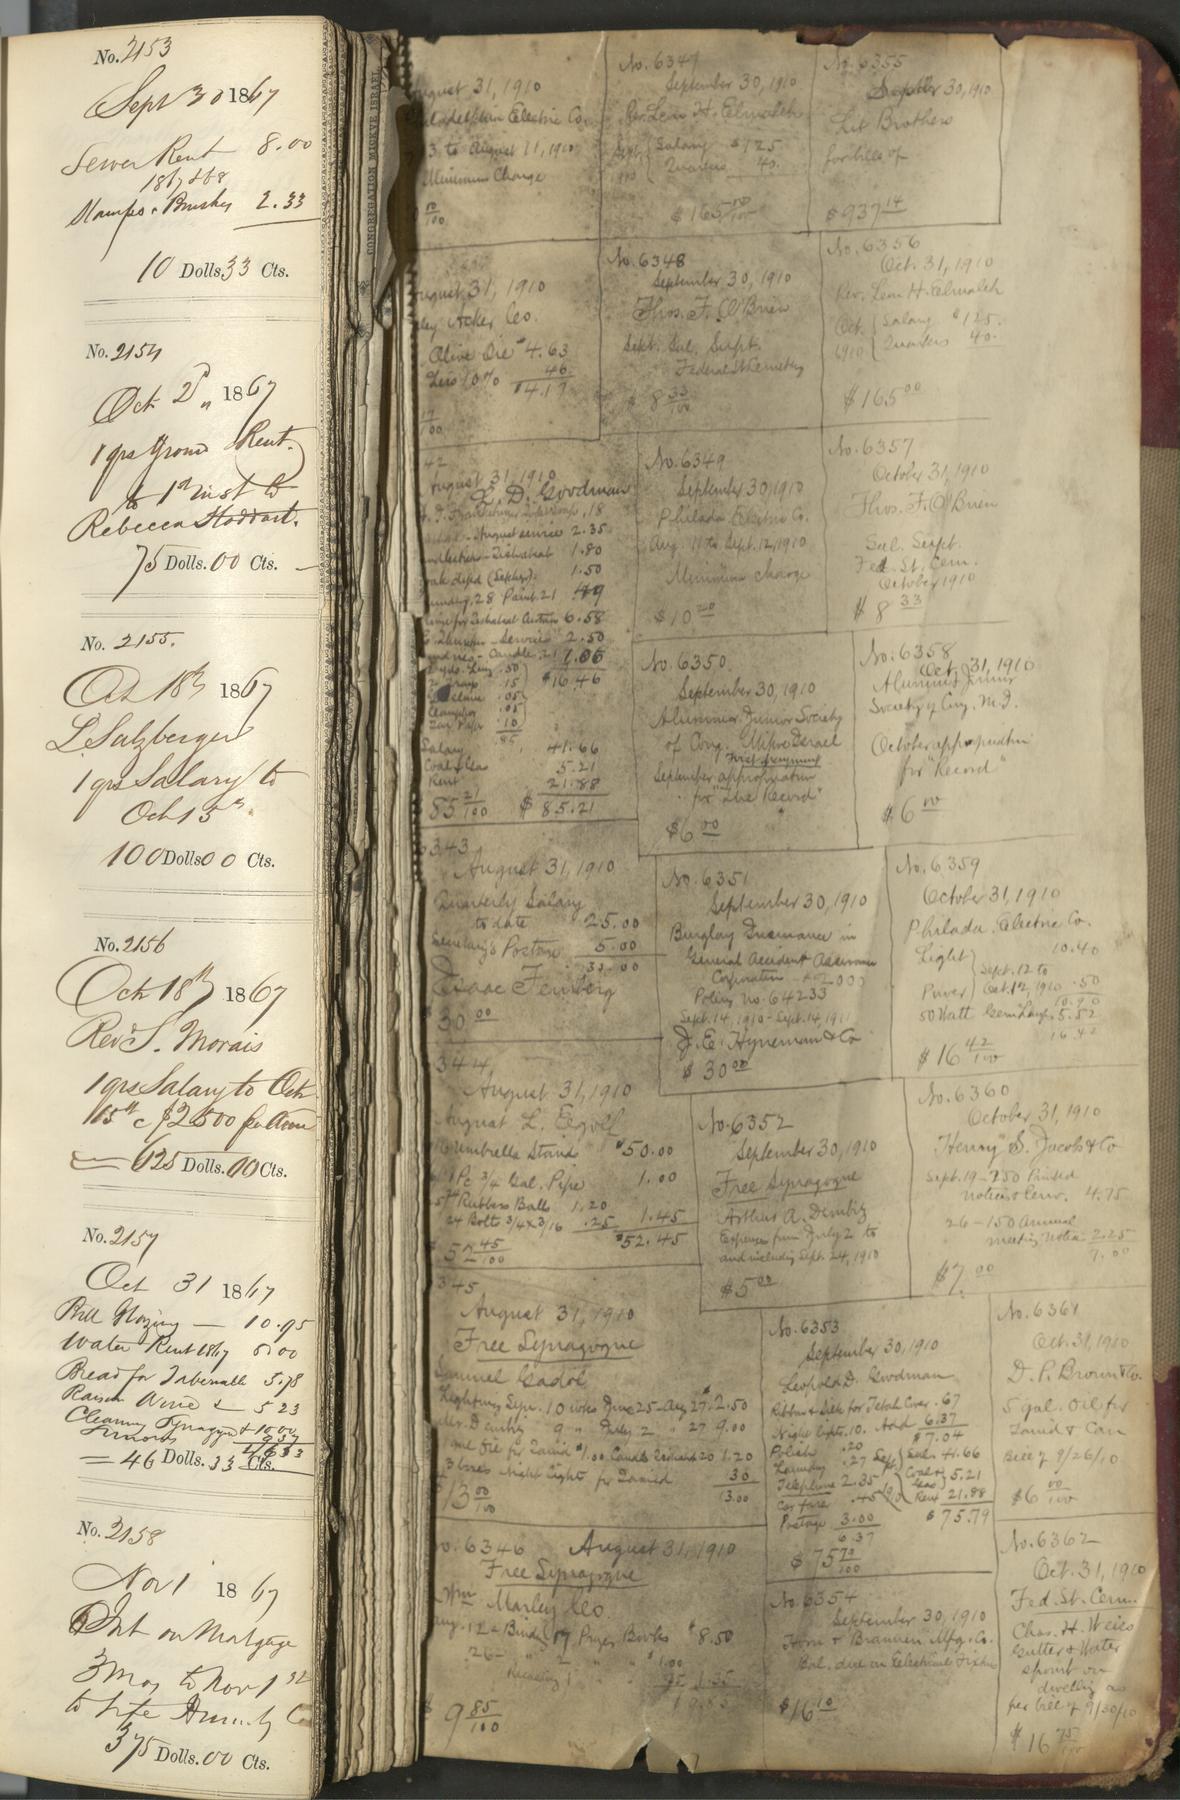 No. 2153
Sept 30 1867
Sewer Rent 8.00
1867 & 68
Stamps & Brushes 2.33
10 Dolls. 33 Cts.
No. 2154
Oct 2d 1867
1 qrs Ground Rent
to 1st inst to
Rebecca Stoddart.
75 Dolls. 00 Cts.
No. 2155.
Oct 18th 1867
L Salzberger
1 qrs Salary to
Oct 15th
100 Dolls 00 Cts.
No. 2156
Oct 18th 1867
Rev S. Morais
1 qrs Salary to Oct
15th @ $2500 per
625 Dolls. 00 Cts.
No. 2157
Oct 31 1867
Bill Glazing — 10.95
Water Rent 1867
Bread for Tabernacle 5.78
Raisin Wine & 5 23
Cleaning Synagogue & 10.00
= 46 Dolls. 33 Cts.
No. 2158
Nov 1 1867
Int on Mortgage
3 Mos to Nov 1
to Life Annuity Co
375 Dolls. 00 Cts.
CONGREGATION MICKVE ISRAEL
August 31, 1910
Philadelphia Electric Co.
to August 11, 1910
Minimum Charge
August 31, 1910
Acker Co.
Olive Oil $4.63
Less 10% 46
$4.17
August 31 1910
L. D. Goodman
August service 2.35
1.80
1.50
6.58
Service 2.50
Candle
$16.46
Salary 41.66
Coal & Gas 5.21
Rent 21.88
85 21/100 $85.21
6343
August 31, 1910
Quarterly Salary
to date 25.00
Secretary's Postage 5.00
30.00
Isaac Feinberg
$30 00
344
August 31, 1910
August L. Eigolf
Umbrella Stands $50.00
1 Pc 3/4 Gal. Pipe 1.00
Rubber Balls 1.20
24 Bolts 3/4 x 3/16 .25 1.45
$52.45
$52 45/100
345
August 31, 1910
Free Synagogue
Samuel Gadol
10 wks June 25-Aug 27 2.50
9 " July 2 " 27 9.00
.30
13.00
$13 00/100
No. 6346 August 31, 1910
Free Synagogue
Wm Marley Co.
Aug. 12 - Bind 17 Prayer Books $8.50
1.35
$9 85/100
No. 6347
September 30, 1910
Rev. Leon H. Elmaleh
Sept. 1910 Salary $125
Quarters 40.
$165 00/100
No. 6348
September 30, 1910
Thos. F. O'Brien
Sept. Sal. Supt.
Federal St Cemetery
$8 33/100
No. 6349
September 30, 1910
Philada Electric Co.
Aug. 11 to Sept. 12, 1910
Minimum charge
$10
No. 6350
September 30, 1910
Alumni & Junior Society
of Cong. Mikve Israel
First
September appropriation
for "The Record"
$6 00
No. 6351
September 30, 1910
Burglary Insurance in
General Accident Assurance
Corporation
Policy No. 64233
Sept. 14, 1910 - Sept. 14, 1911
J. E. Hyneman & Co
$30 00
No. 6352
September 30, 1910
Free Synagogue
Arthur A. Dembitz
Expenses from July 2 to
and including Sept. 24, 1910
$5 00
No. 6353
September 30, 1910
Leopold D. Goodman
.67
Night lights .10. Add 6.37
$7.04
Polish .20
Laundry .27
Sept 1910 Sal. 41.66
Telephone 2.35 Coal & Gas 5.21
Car fares .45 Rent 21.88
Postage 3.00 $75.79
6.37
$75 79/100
No. 6354
September 30, 1910
Horn & Brannen Mfg. Co.
Bal. due on Electrical Fixture
$16 10
No. 6355
September 30, 1910
Lit Brothers
for bills of
$937 14
No. 6356
Oct. 31, 1910
Rev. Leon H. Elmaleh
Oct. 1910 Salary $125.
Quarters 40.
$165 00
No. 6357
October 31, 1910
Thos. F. O'Brien
Sal. Supt.
Fed. St. Cem.
October 1910
$8 33
No. 6358
Oct. 31, 1910
Alumni & Junior
Society of Cong. M. I.
October appropriation
for "Record"
$6 00
No. 6359
October 31, 1910
Philada. Electric Co.
Light 10.40
Sept. 12 to
Power Oct. 12, 1910 .50
10.90
50 Watt Gem Lamps 5.52
16.42
$16 42/100
No. 6360
October 31, 1910
Henry S. Jacobs & Co
Sept. 19 - 250 Printed
notices & Env. 4.75
26 - 150 Annual
meeting notice 2.25
7.00
$7. 00
No. 6361
Oct. 31, 1910
D. P. Brown & Co.
5 gal. Oil for
Tamid & Can
Bill of 9/26/10
$6 00/100
No. 6362
Oct. 31, 1910
Fed. St. Cem.
Chas. H. Weiss
Gutter & Water
spout on
dwelling as
per bill of 9/30/10
$16 75/100